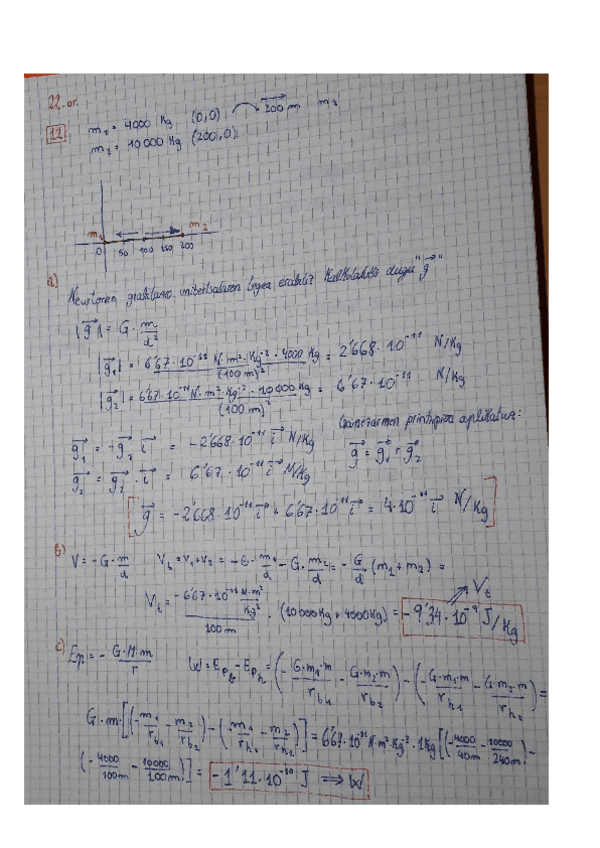 22. or.
12 m₁ = 4000 Kg (0,0) 200 m
m₂ = 10 000 Kg (200,0)
m₁ m₂
0 50 100 150 200
a) Newtonen grabitazio unibertsalaren legea erabiliz kalkulatuko dugu "g⃗"
|g⃗| = G · m/d²
|g⃗₁| = 6'67·10⁻¹¹ N·m²·Kg⁻² · 4000 Kg / (100 m)² = 2'668·10⁻¹¹ N/Kg
|g⃗₂| = 6'67·10⁻¹¹ N·m²·Kg⁻² · 10000 Kg / (100 m)² = 6'67·10⁻¹¹ N/Kg
Gainezarmen printzipioa aplikatuz:
g⃗₁ = -g⃗₁ i⃗ = -2'668·10⁻¹¹ i⃗ N/Kg
g⃗ = g⃗₁ + g⃗₂
g⃗₂ = g⃗₂ · i⃗ = 6'67·10⁻¹¹ i⃗ N/Kg
[g⃗ = -2'668·10⁻¹¹ i⃗ + 6'67·10⁻¹¹ i⃗ = 4·10⁻¹¹ i⃗ N/Kg]
b) V = -G · m/d V_t = V₁+V₂ = -G · m₁/d - G · m₂/d = -G/d (m₁+m₂) =
V_t
V_t = -6'67·10⁻¹¹ N·m²/Kg² / 100 m · (10000 Kg + 4000 Kg) = -9'34·10⁻⁹ J/Kg
c) Ep = - G·M·m/r W = E_pb - E_ph = (-G·m₁·m/r_b1 - G·m₂·m/r_b2) - (-G·m₁·m/r_h1 - G·m₂·m/r_h2) =
G·m·[(-m₁/r_b1 - m₂/r_b2) - (-m₁/r_h1 - m₂/r_h2)] = 6'67·10⁻¹¹ N·m²·Kg⁻² · 1Kg [(-4000/40m - 10000/240m) -
(-4000/100m - 10000/100m)] = -1'11·10⁻¹⁰ J ⟹ W